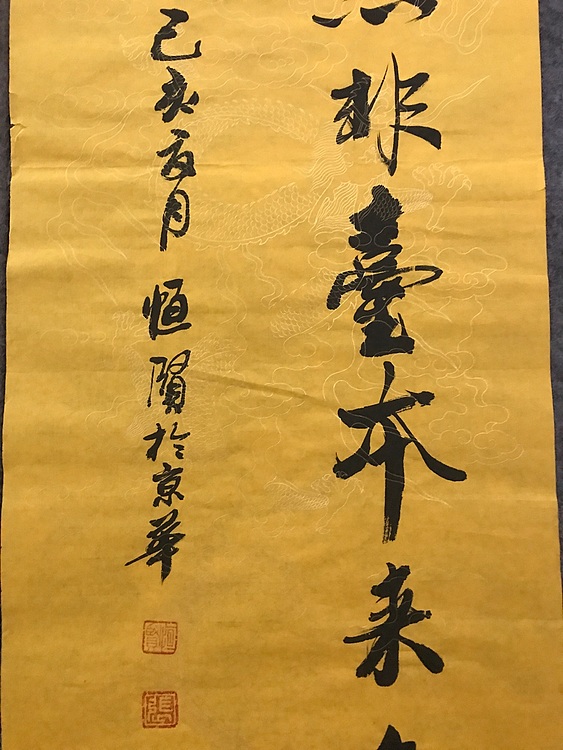 非臺本来
己亥夏月恒賢於京華
恒賢
張